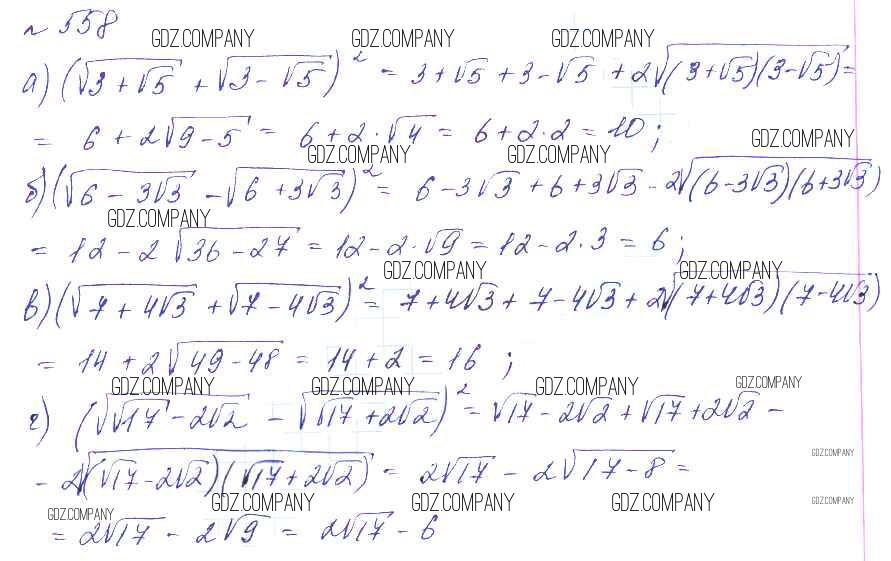 № 558
GDZ.COMPANY GDZ.COMPANY GDZ.COMPANY
а) (√(3 + √5) + √(3 - √5))² = 3 + √5 + 3 - √5 + 2√((3 + √5)(3 - √5)) =
= 6 + 2√(9 - 5) = 6 + 2 · √4 = 6 + 2 · 2 = 10 ;
GDZ.COMPANY GDZ.COMPANY GDZ.COMPANY
б) (√(6 - 3√3) - √(6 + 3√3))² = 6 - 3√3 + 6 + 3√3 - 2√((6 - 3√3)(6 + 3√3))
GDZ.COMPANY
= 12 - 2√(36 - 27) = 12 - 2 · √9 = 12 - 2 · 3 = 6 ;
GDZ.COMPANY GDZ.COMPANY
в) (√(7 + 4√3) + √(7 - 4√3))² = 7 + 4√3 + 7 - 4√3 + 2√((7 + 4√3)(7 - 4√3))
= 14 + 2√(49 - 48) = 14 + 2 = 16 ;
GDZ.COMPANY GDZ.COMPANY GDZ.COMPANY GDZ.COMPANY
г) (√(√17 - 2√2) - √(√17 + 2√2))² = √17 - 2√2 + √17 + 2√2 -
GDZ.COMPANY
- 2√((√17 - 2√2)(√17 + 2√2)) = 2√17 - 2√(17 - 8) =
GDZ.COMPANY GDZ.COMPANY GDZ.COMPANY GDZ.COMPANY GDZ.COMPANY
= 2√17 - 2√9 = 2√17 - 6